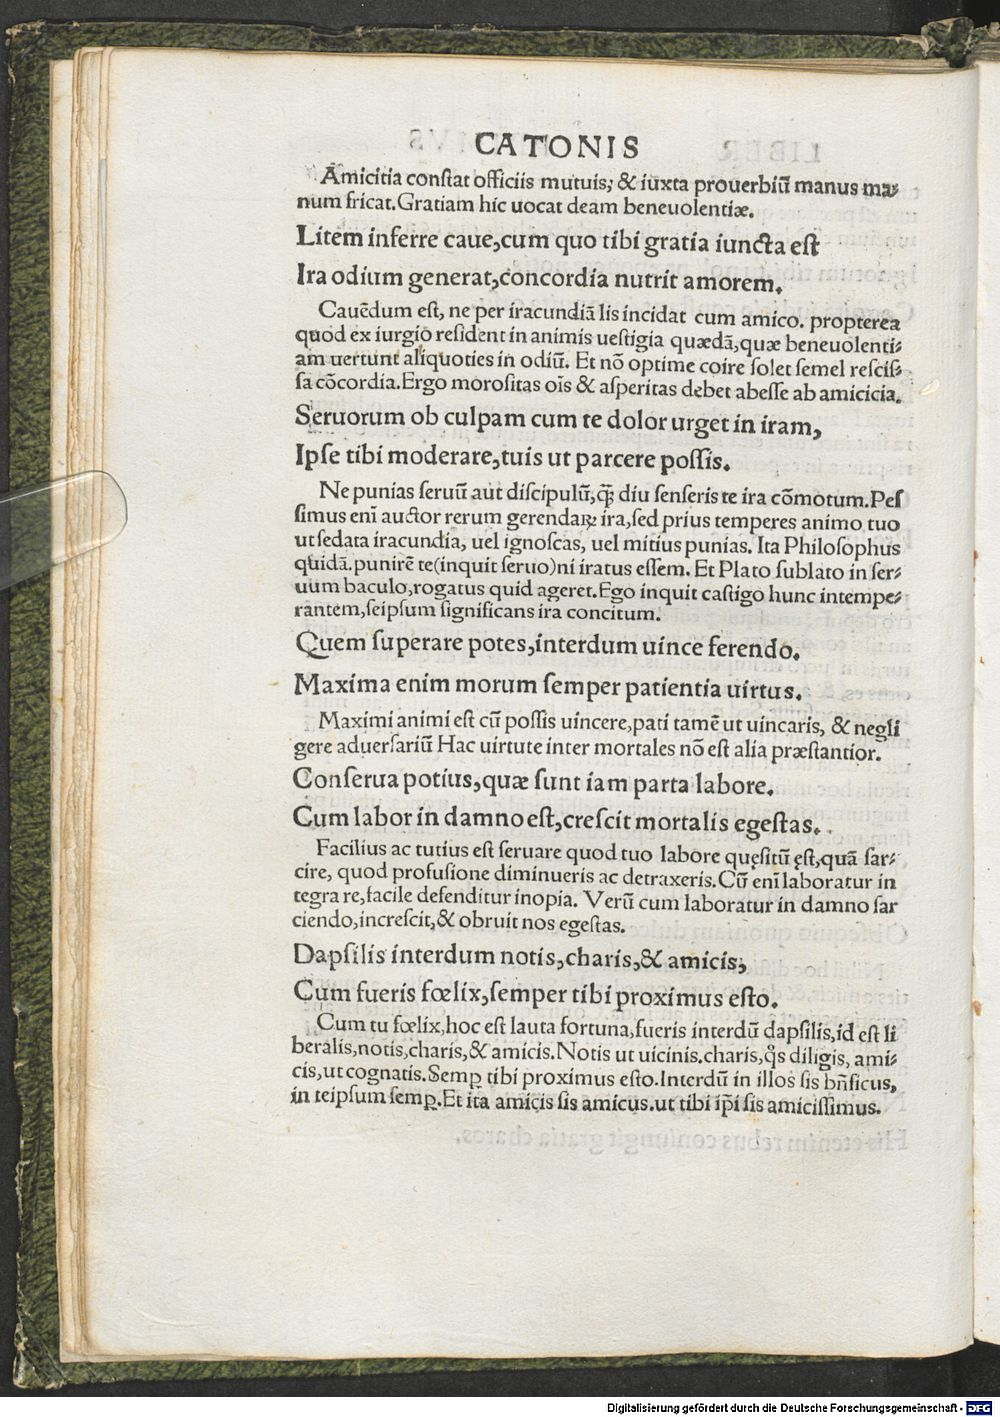 CATONIS
Amicitia conſtat officiis mutuis; & iuxta prouerbiū manus ma⸗
num fricat. Gratiam hic uocat deam beneuolentiæ.
Litem inferre caue, cum quo tibi gratia iuncta eſt
Ira odium generat, concordia nutrit amorem.
Cauēdum eſt, ne per iracundiā lis incidat cum amico. propterea
quod ex iurgio reſident in animis ueſtigia quædā, quæ beneuolenti⸗
am uertunt aliquoties in odiū. Et nō optime coire ſolet ſemel reſciſ⸗
ſa cōcordia. Ergo moroſitas oīs & aſperitas debet abeſſe ab amicicia.
Seruorum ob culpam cum te dolor urget in iram,
Ipſe tibi moderare, tuis ut parcere poſſis.
Ne punias ſeruū aut diſcipulū, qȝ̄ diu ſenſeris te ira cōmotum. Peſ
ſimus eni auctor rerum gerendaꝝ ira, ſed prius temperes animo tuo
ut ſedata iracundia, uel ignoſcas, uel mitius punias. Ita Philoſophus
quidā. punirē te (inquit ſeruo) ni iratus eſſem. Et Plato ſublato in ſer⸗
uum baculo, rogatus quid ageret. Ego inquit caſtigo hunc intempe⸗
rantem, ſeipſum ſignificans ira concitum.
Quem ſuperare potes, interdum uince ferendo.
Maxima enim morum ſemper patientia uirtus.
Maximi animi eſt cū poſſis uincere, pati tamē ut uincaris, & negli
gere aduerſariū Hac uirtute inter mortales nō eſt alia præſtantior.
Conſerua potius, quæ ſunt iam parta labore.
Cum labor in damno eſt, creſcit mortalis egeſtas.
Facilius ac tutius eſt ſeruare quod tuo labore queſitū ęſt, quā ſar⸗
cire, quod profuſione diminueris ac detraxeris. Cū eni laboratur in
tegra re, facile defenditur inopia. Verū cum laboratur in damno ſar
ciendo, increſcit, & obruit nos egeſtas.
Dapſilis interdum notis, charis, & amicis;
Cum fueris fœlix, ſemper tibi proximus eſto.
Cum tu fœlix, hoc eſt lauta fortuna, fueris interdū dapſilis, id eſt li
beralis, notis, charis, & amicis. Notis ut uicinis. charis, q̄s diligis, ami⸗
cis, ut cognatis. Semꝑ tibi proximus eſto. Interdū in illos ſis bn̄ficus,
in teipſum ſemꝑ. Et ita amicis ſis amicus. ut tibi ip̄i ſis amiciſſimus.
Digitalisierung gefördert durch die Deutsche Forschungsgemeinschaft - DFG